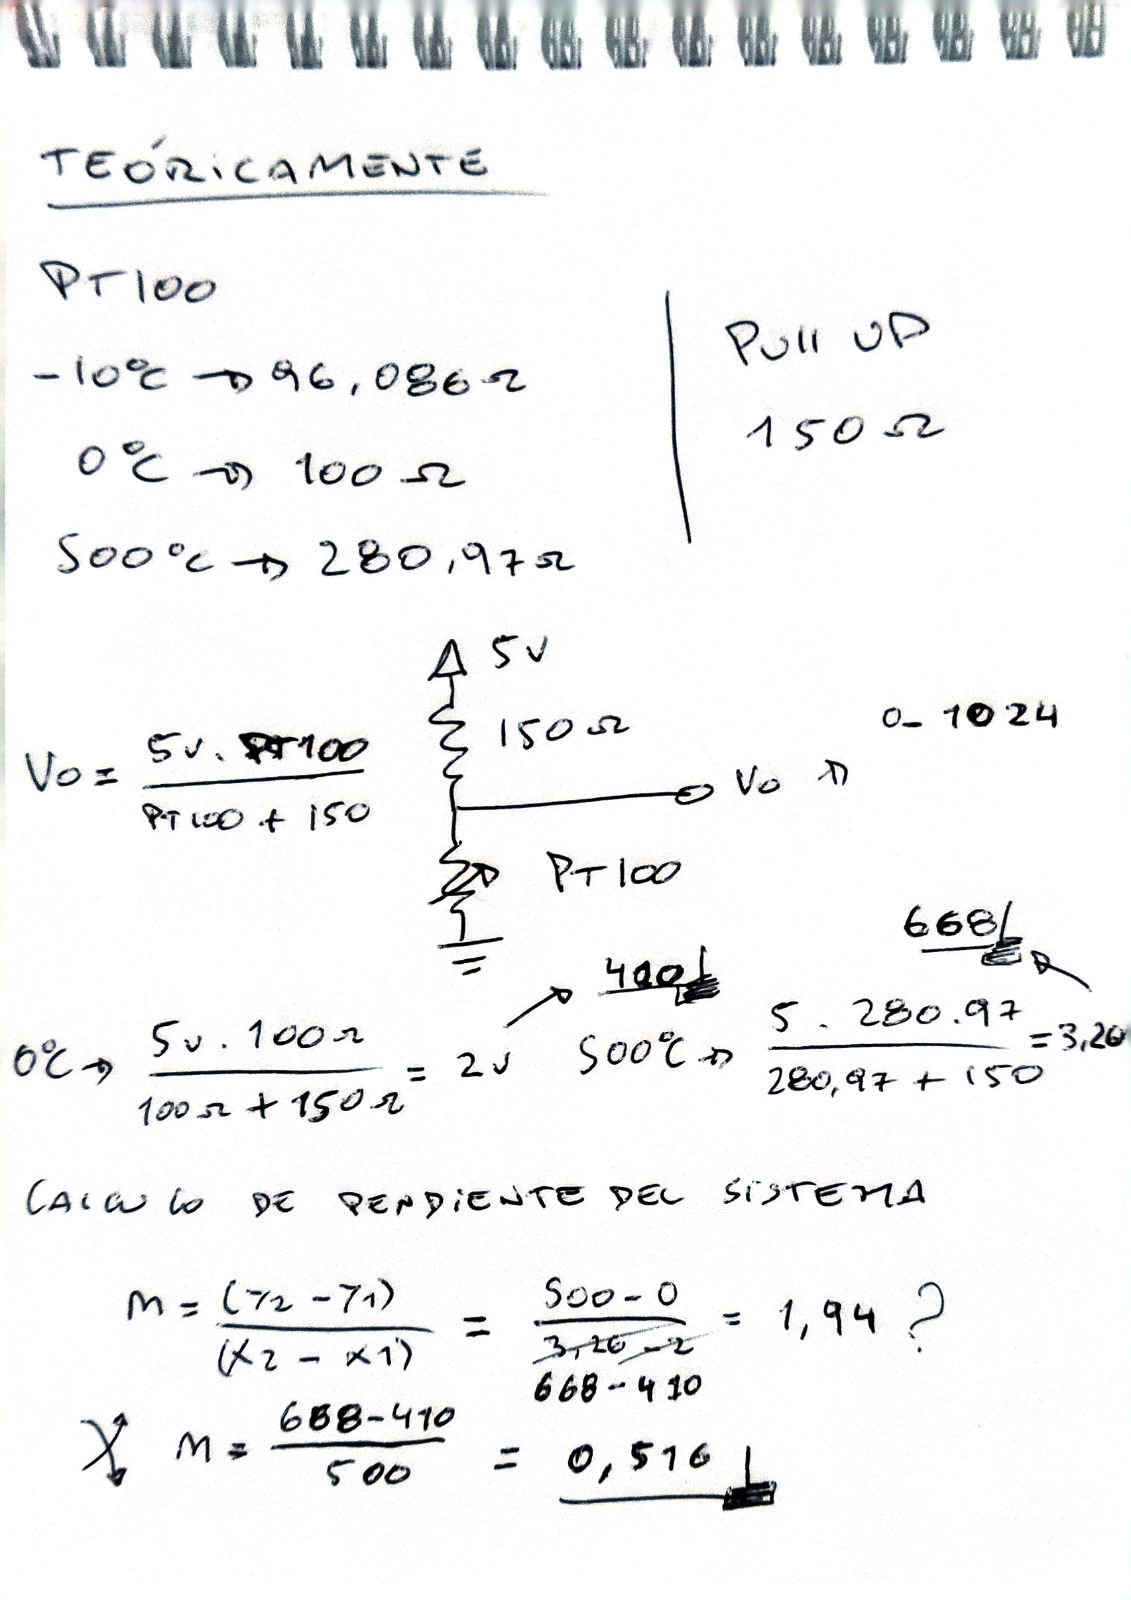 TEÓRICAMENTE
PT100
-10°C → 96,086Ω
0°C → 100Ω
500°C → 280,97Ω
Pull UP
150Ω
5V
150Ω
Vo → 0-1024
Vo = 5v. PT100 / PT100 + 150
PT100
410
668
0°C → 5v. 100Ω / 100Ω + 150Ω = 2v
500°C → 5. 280.97 / 280,97 + 150 = 3,26
CALCULO DE PENDIENTE DEL SISTEMA
M = (Y2 - Y1) / (X2 - X1) = 500-0 / 3,26-2 668-410 = 1,94 ?
M = 668-410 / 500 = 0,516